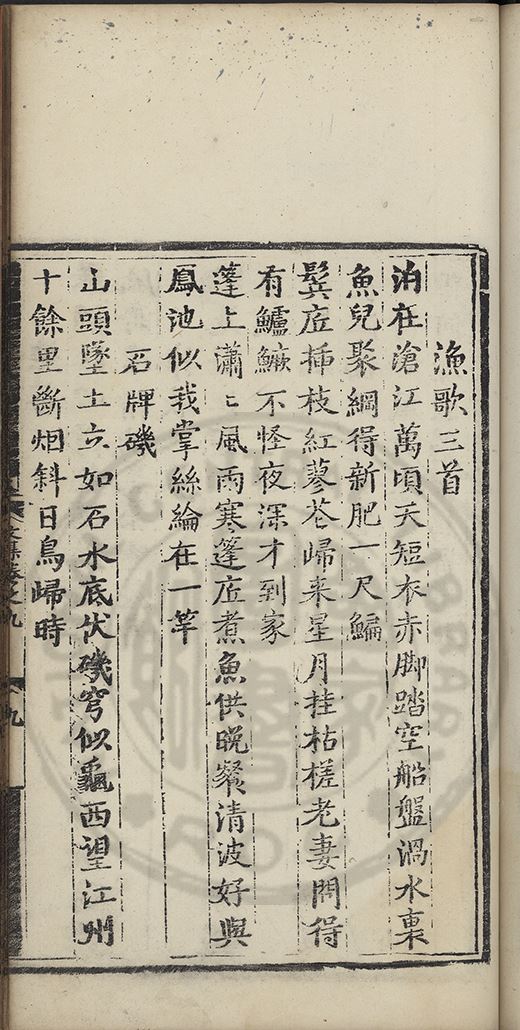 漁歌三首
泊在滄江萬頃天短衣赤脚踏空船盤渦水裏
魚兒聚網得新肥一尺鯿
鬓底揷枝紅蓼花歸来星月挂枯槎老妻問得
有鱸鱖不怪夜深才到家
篷上瀟〻風雨寒篷底煮魚供晚餐清波好與
鳳池似我掌絲綸在一竿
石牌磯
山頭墜土立如石水底伏磯穹似龜西望江州
十餘里斷烟斜日鳥歸時
文集卷之九
九